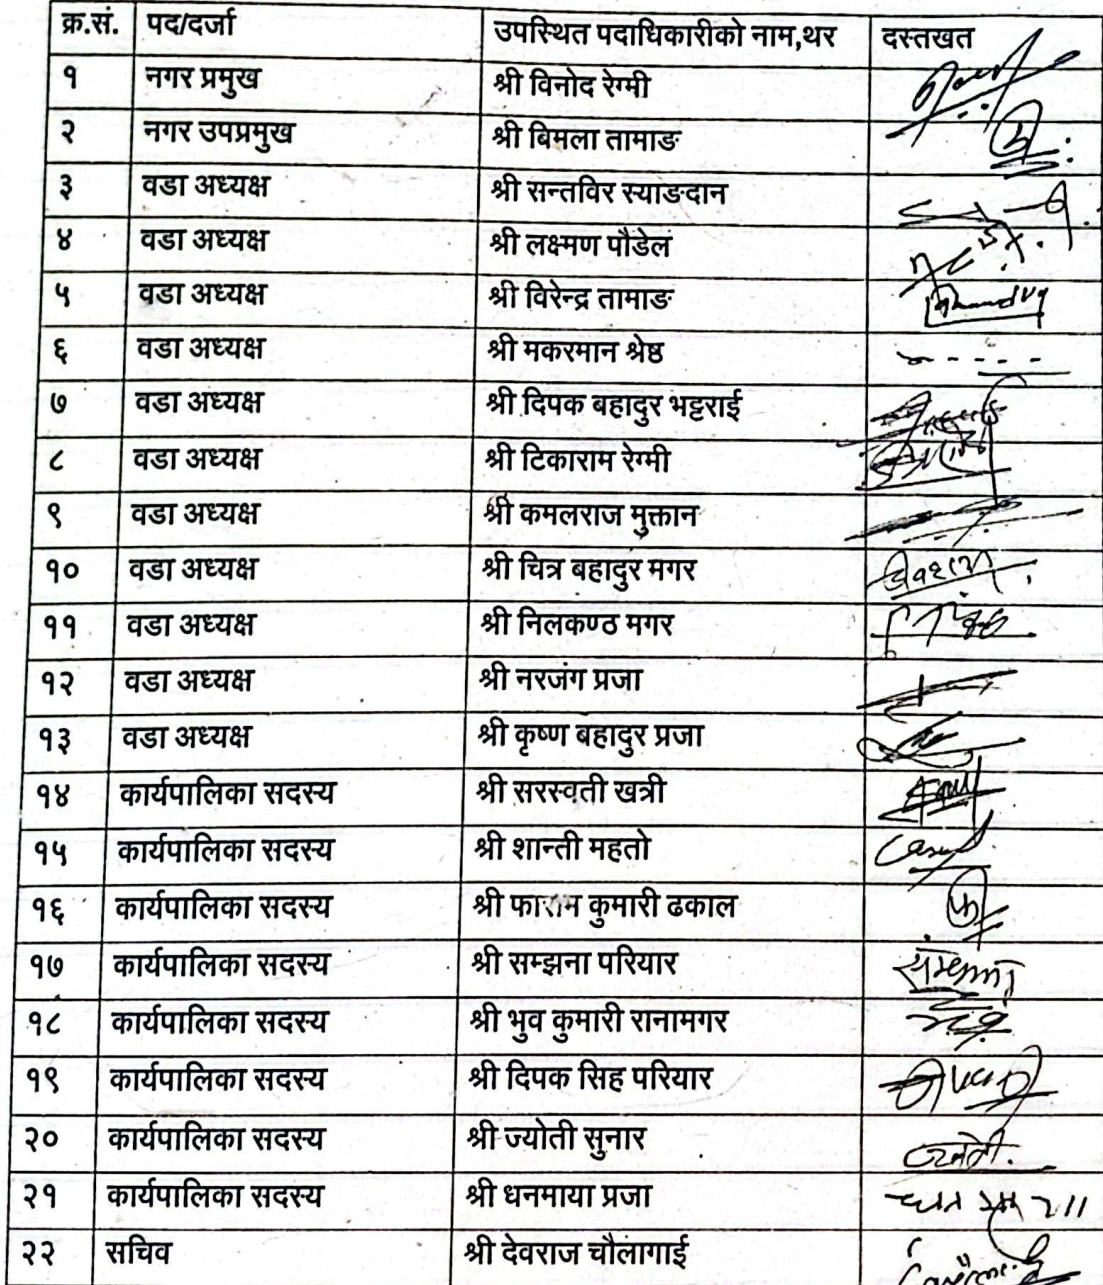 क्र.सं. पद/दर्जा उपस्थित पदाधिकारीको नाम,थर दस्तखत
१ नगर प्रमुख श्री विनोद रेग्मी
२ नगर उपप्रमुख श्री बिमला तामाङ
३ वडा अध्यक्ष श्री सन्तविर स्याङदान
४ वडा अध्यक्ष श्री लक्ष्मण पौडेल
५ वडा अध्यक्ष श्री विरेन्द्र तामाङ
६ वडा अध्यक्ष श्री मकरमान श्रेष्ठ
७ वडा अध्यक्ष श्री दिपक बहादुर भट्टराई
८ वडा अध्यक्ष श्री टिकाराम रेग्मी
९ वडा अध्यक्ष श्री कमलराज मुक्तान
१० वडा अध्यक्ष श्री चित्र बहादुर मगर
११ वडा अध्यक्ष श्री निलकण्ठ मगर
१२ वडा अध्यक्ष श्री नरजंग प्रजा
१३ वडा अध्यक्ष श्री कृष्ण बहादुर प्रजा
१४ कार्यपालिका सदस्य श्री सरस्वती खत्री
१५ कार्यपालिका सदस्य श्री शान्ती महतो
१६ कार्यपालिका सदस्य श्री कुमारी ढकाल
१७ कार्यपालिका सदस्य श्री सम्झना परियार
१८ कार्यपालिका सदस्य श्री भुव कुमारी रानामगर
१९ कार्यपालिका सदस्य श्री दिपक सिह परियार
२० कार्यपालिका सदस्य श्री ज्योती सुनार
२१ कार्यपालिका सदस्य श्री धनमाया प्रजा
२२ सचिव श्री देवराज चौलागाई